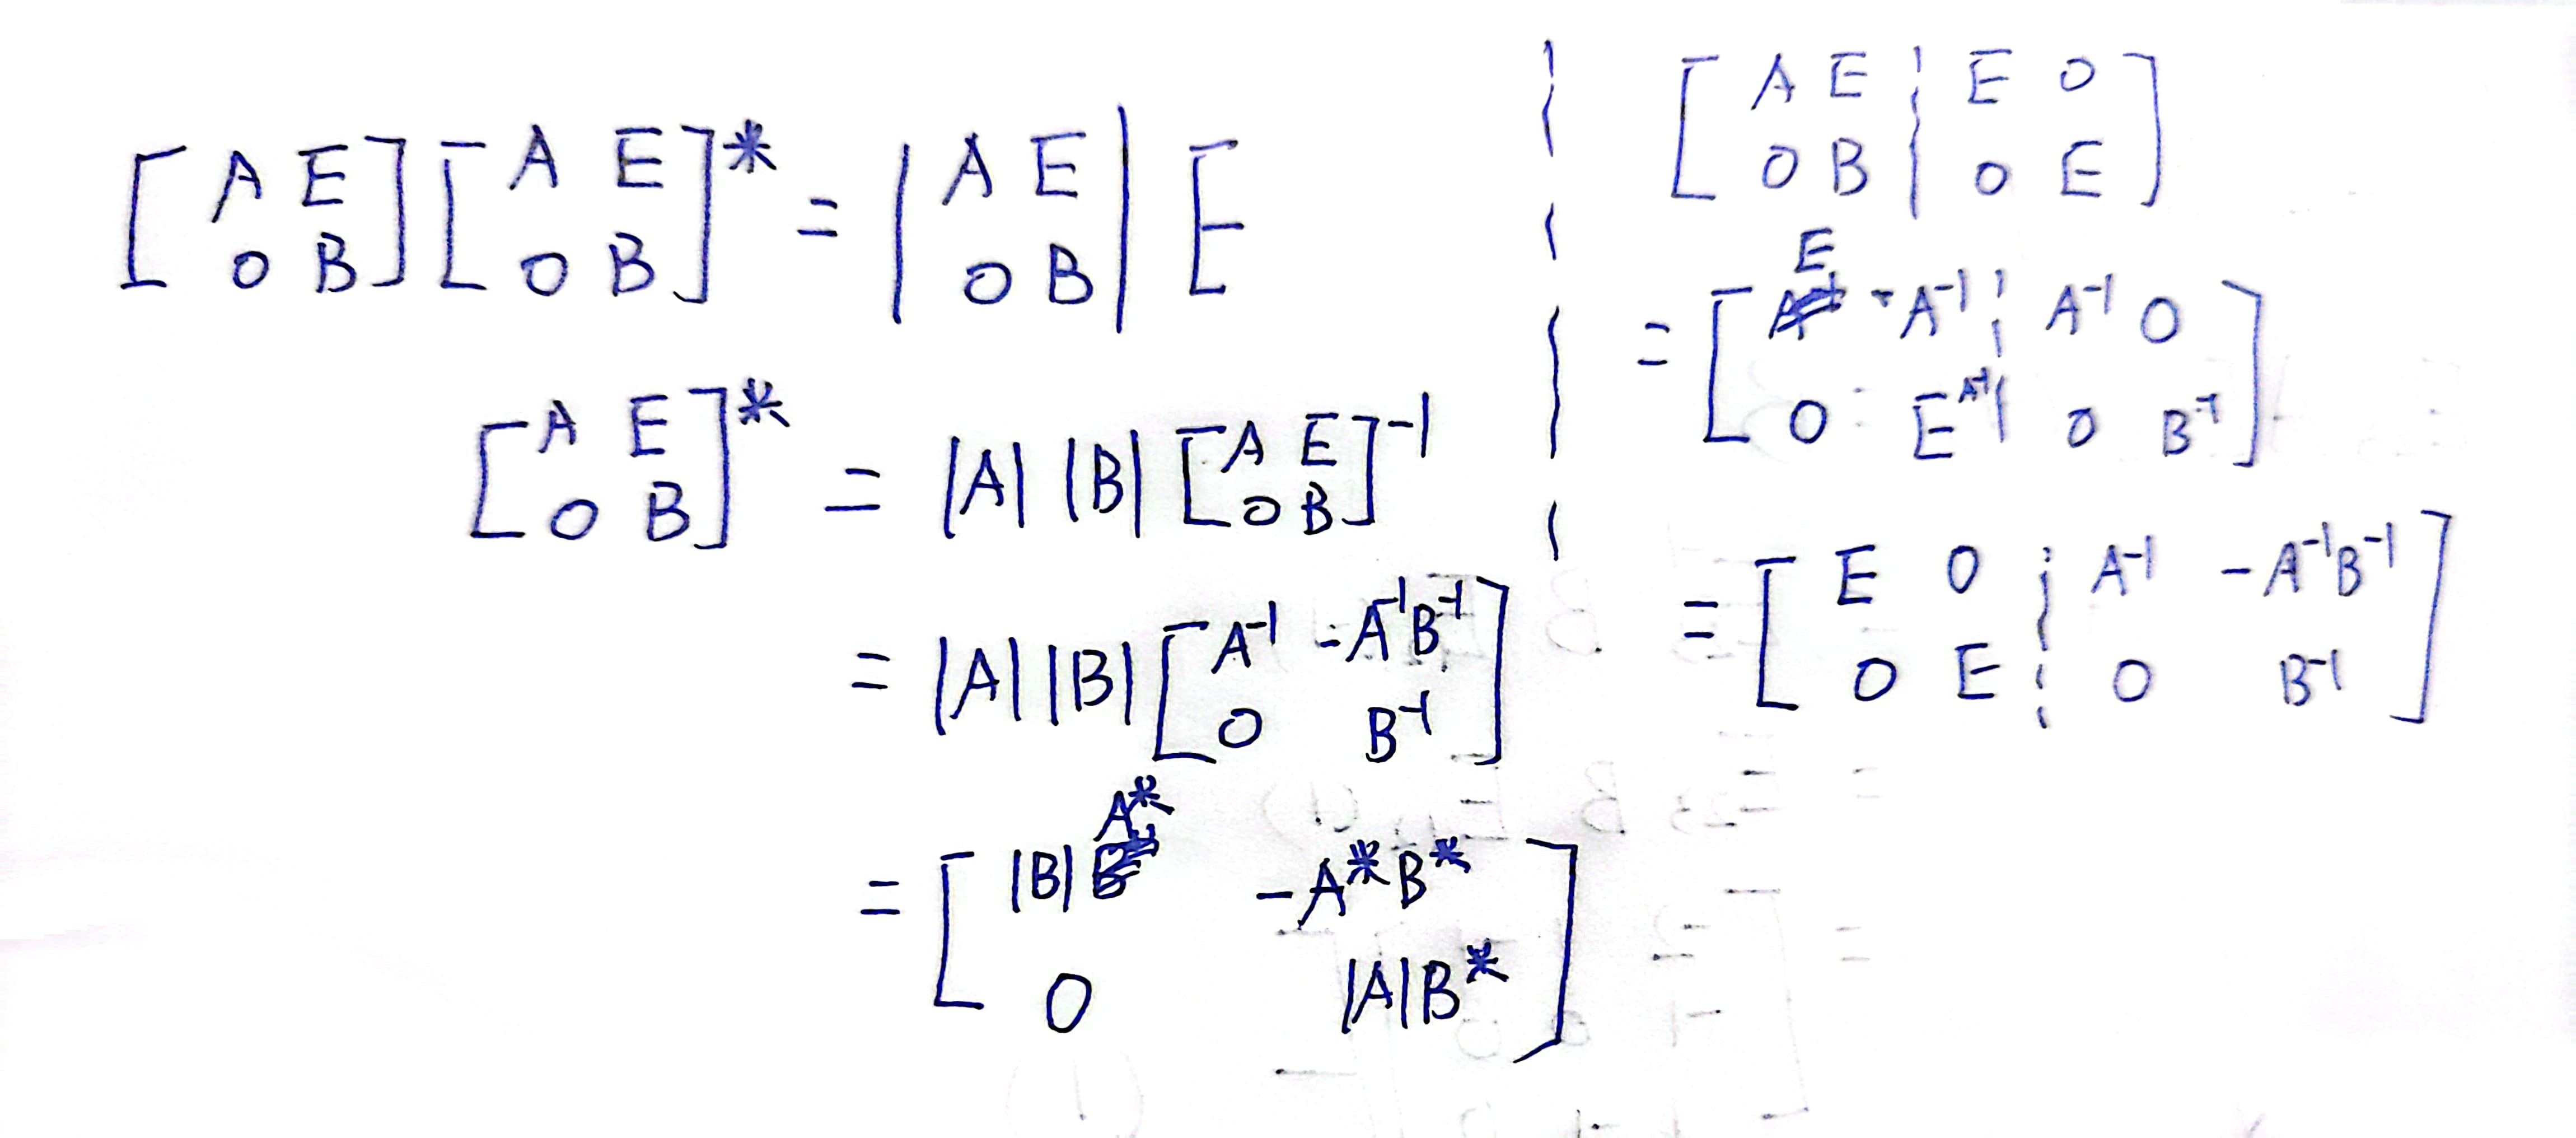 [A E; O B] [A E; O B]* = |A E; O B| E
[A E; O B]* = |A| |B| [A E; O B]⁻¹
= |A| |B| [A⁻¹ -A⁻¹B⁻¹; O B⁻¹]
= [|B|A* -A*B*; O |A|B*]
[A E ¦ E O; O B ¦ O E]
= [E A⁻¹ ¦ A⁻¹ O; O E ¦ O B⁻¹]
= [E O ¦ A⁻¹ -A⁻¹B⁻¹; O E ¦ O B⁻¹]